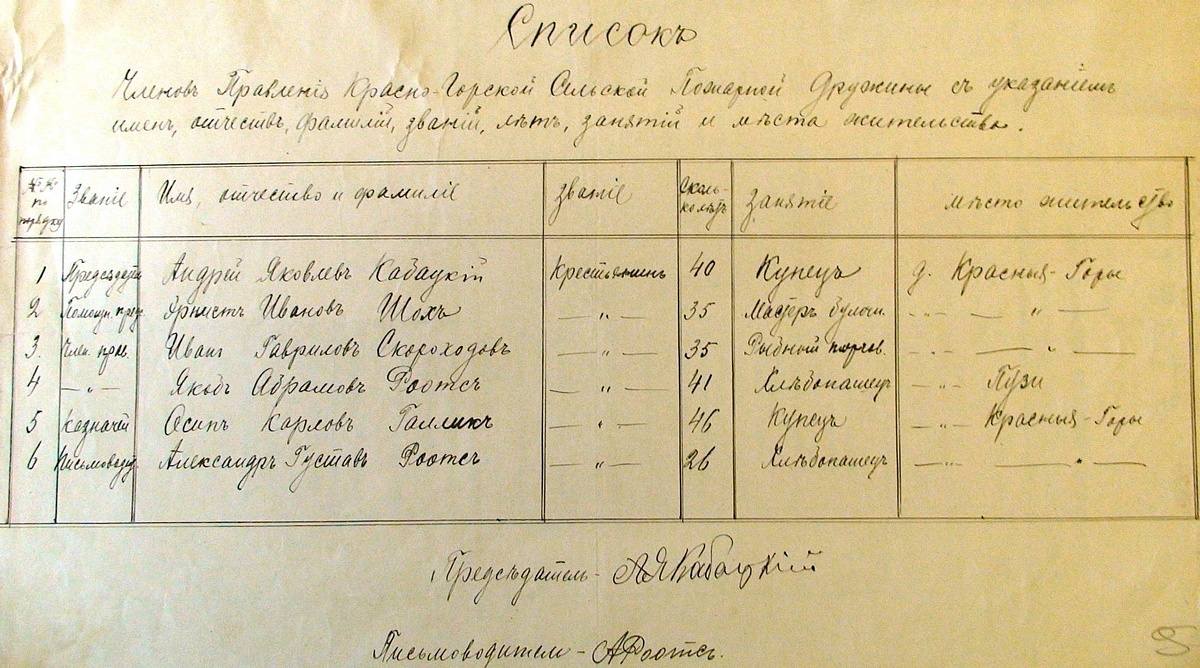 Списокъ
Членовъ Правленія Красно-Горской Сельской Пожарной Дружины съ указаніемъ
именъ, отчествъ, фамилій, званій, лѣтъ, занятій и мѣста жительства.
№№ по порядку Званіе Имя, отчество и фамиліе Званіе Сколь-ко лѣтъ Занятіе Мѣсто жительство
1 Предсѣдат. Андрей Яковлевъ Кабацкій Крестьянинъ 40 Купецъ д. Красныя-Горы
2 Помощн. пред. Эрнстъ Ивановъ Шохъ — „ — 35 Мастеръ булочн. -„- — „ —
3. Член. прав. Иванъ Гавриловъ Скороходовъ — „ — 35 Рыбный торгов. -„- — „ —
4 — „ — Якобъ Абрамовъ Роотсъ — „ — 41 Хлѣбопашецъ -„- Пузи
5 Казначей Осипъ Карловъ Галликъ — „ — 46 Купецъ -„- Красныя-Горы
6 Письмовод. Александръ Густавъ Роотсъ — „ — 26 Хлѣбопашецъ -„- — „ —
Предсѣдатель - АЯКабацкій
Письмоводитель - АРоотсъ.